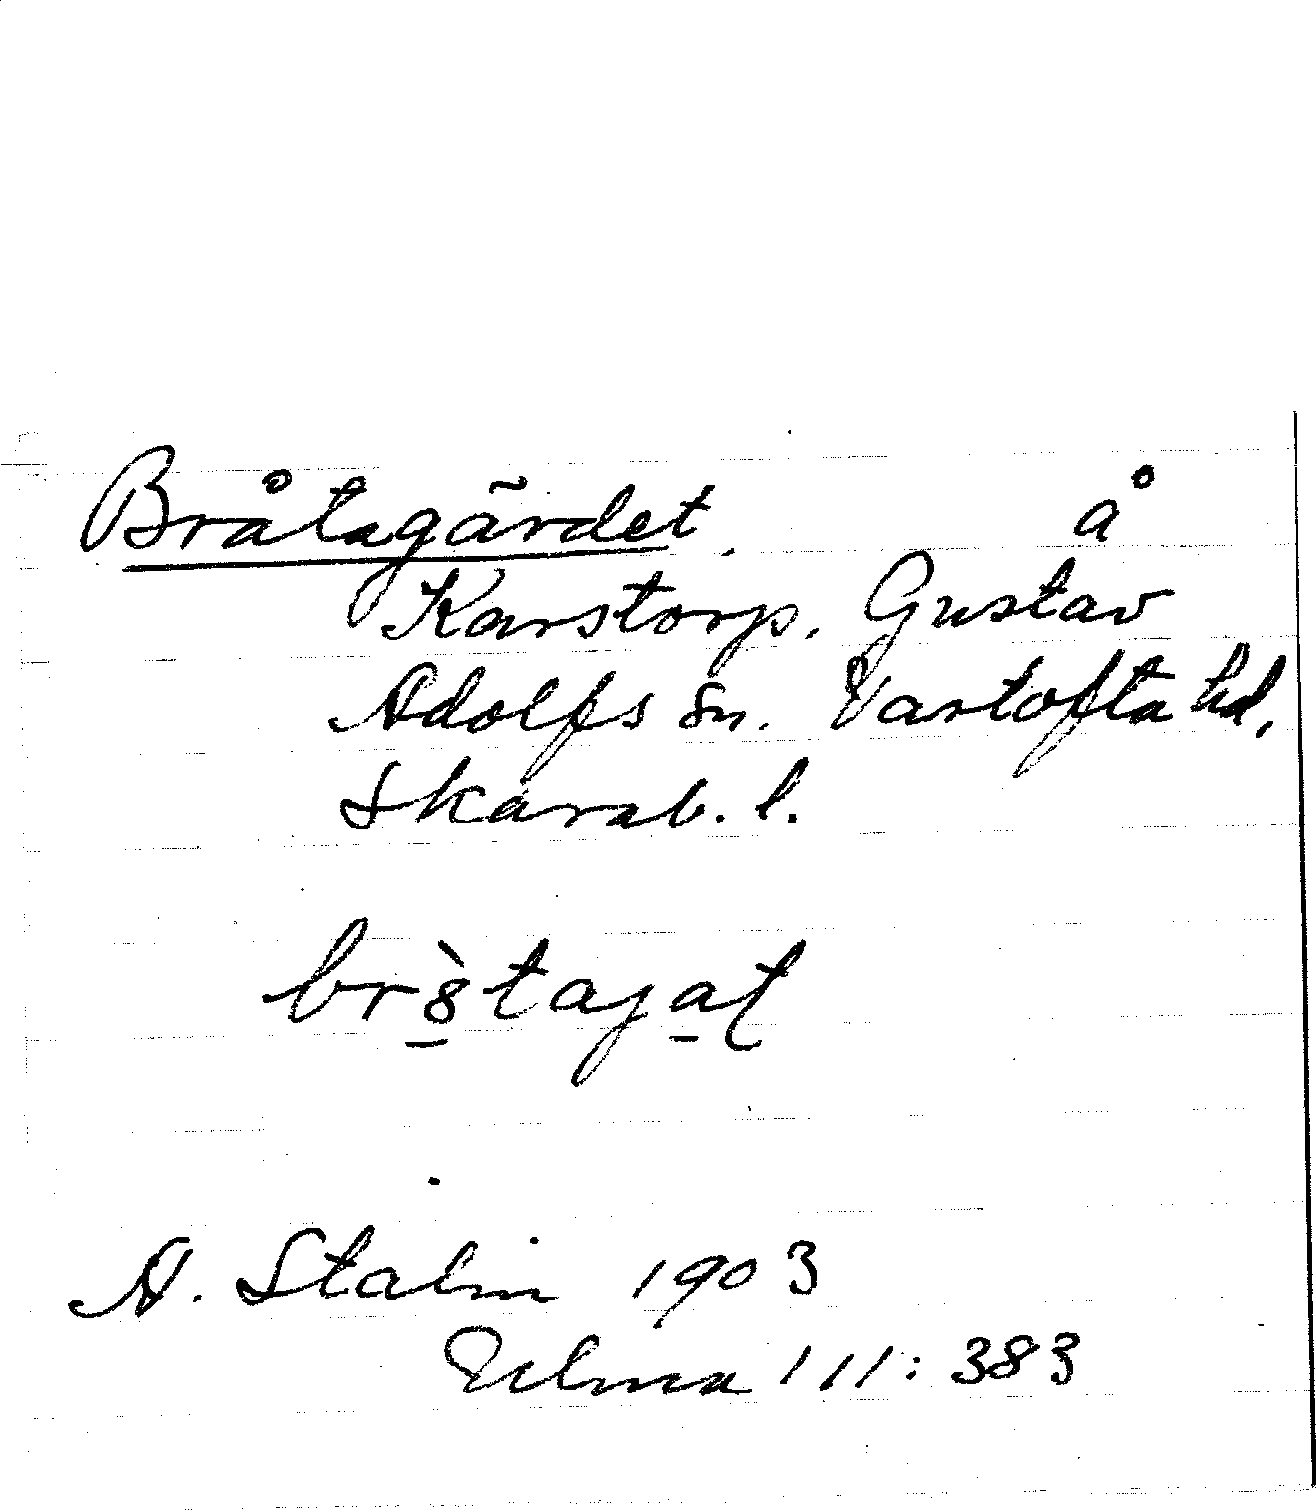 Bråtagärdet. å
Karstorp. Gustav
Adolfs sn. Vartofta hd.
Skarab. l.
br8̲̀taja̲t
A. Stalin 1903
Ulma 111:383